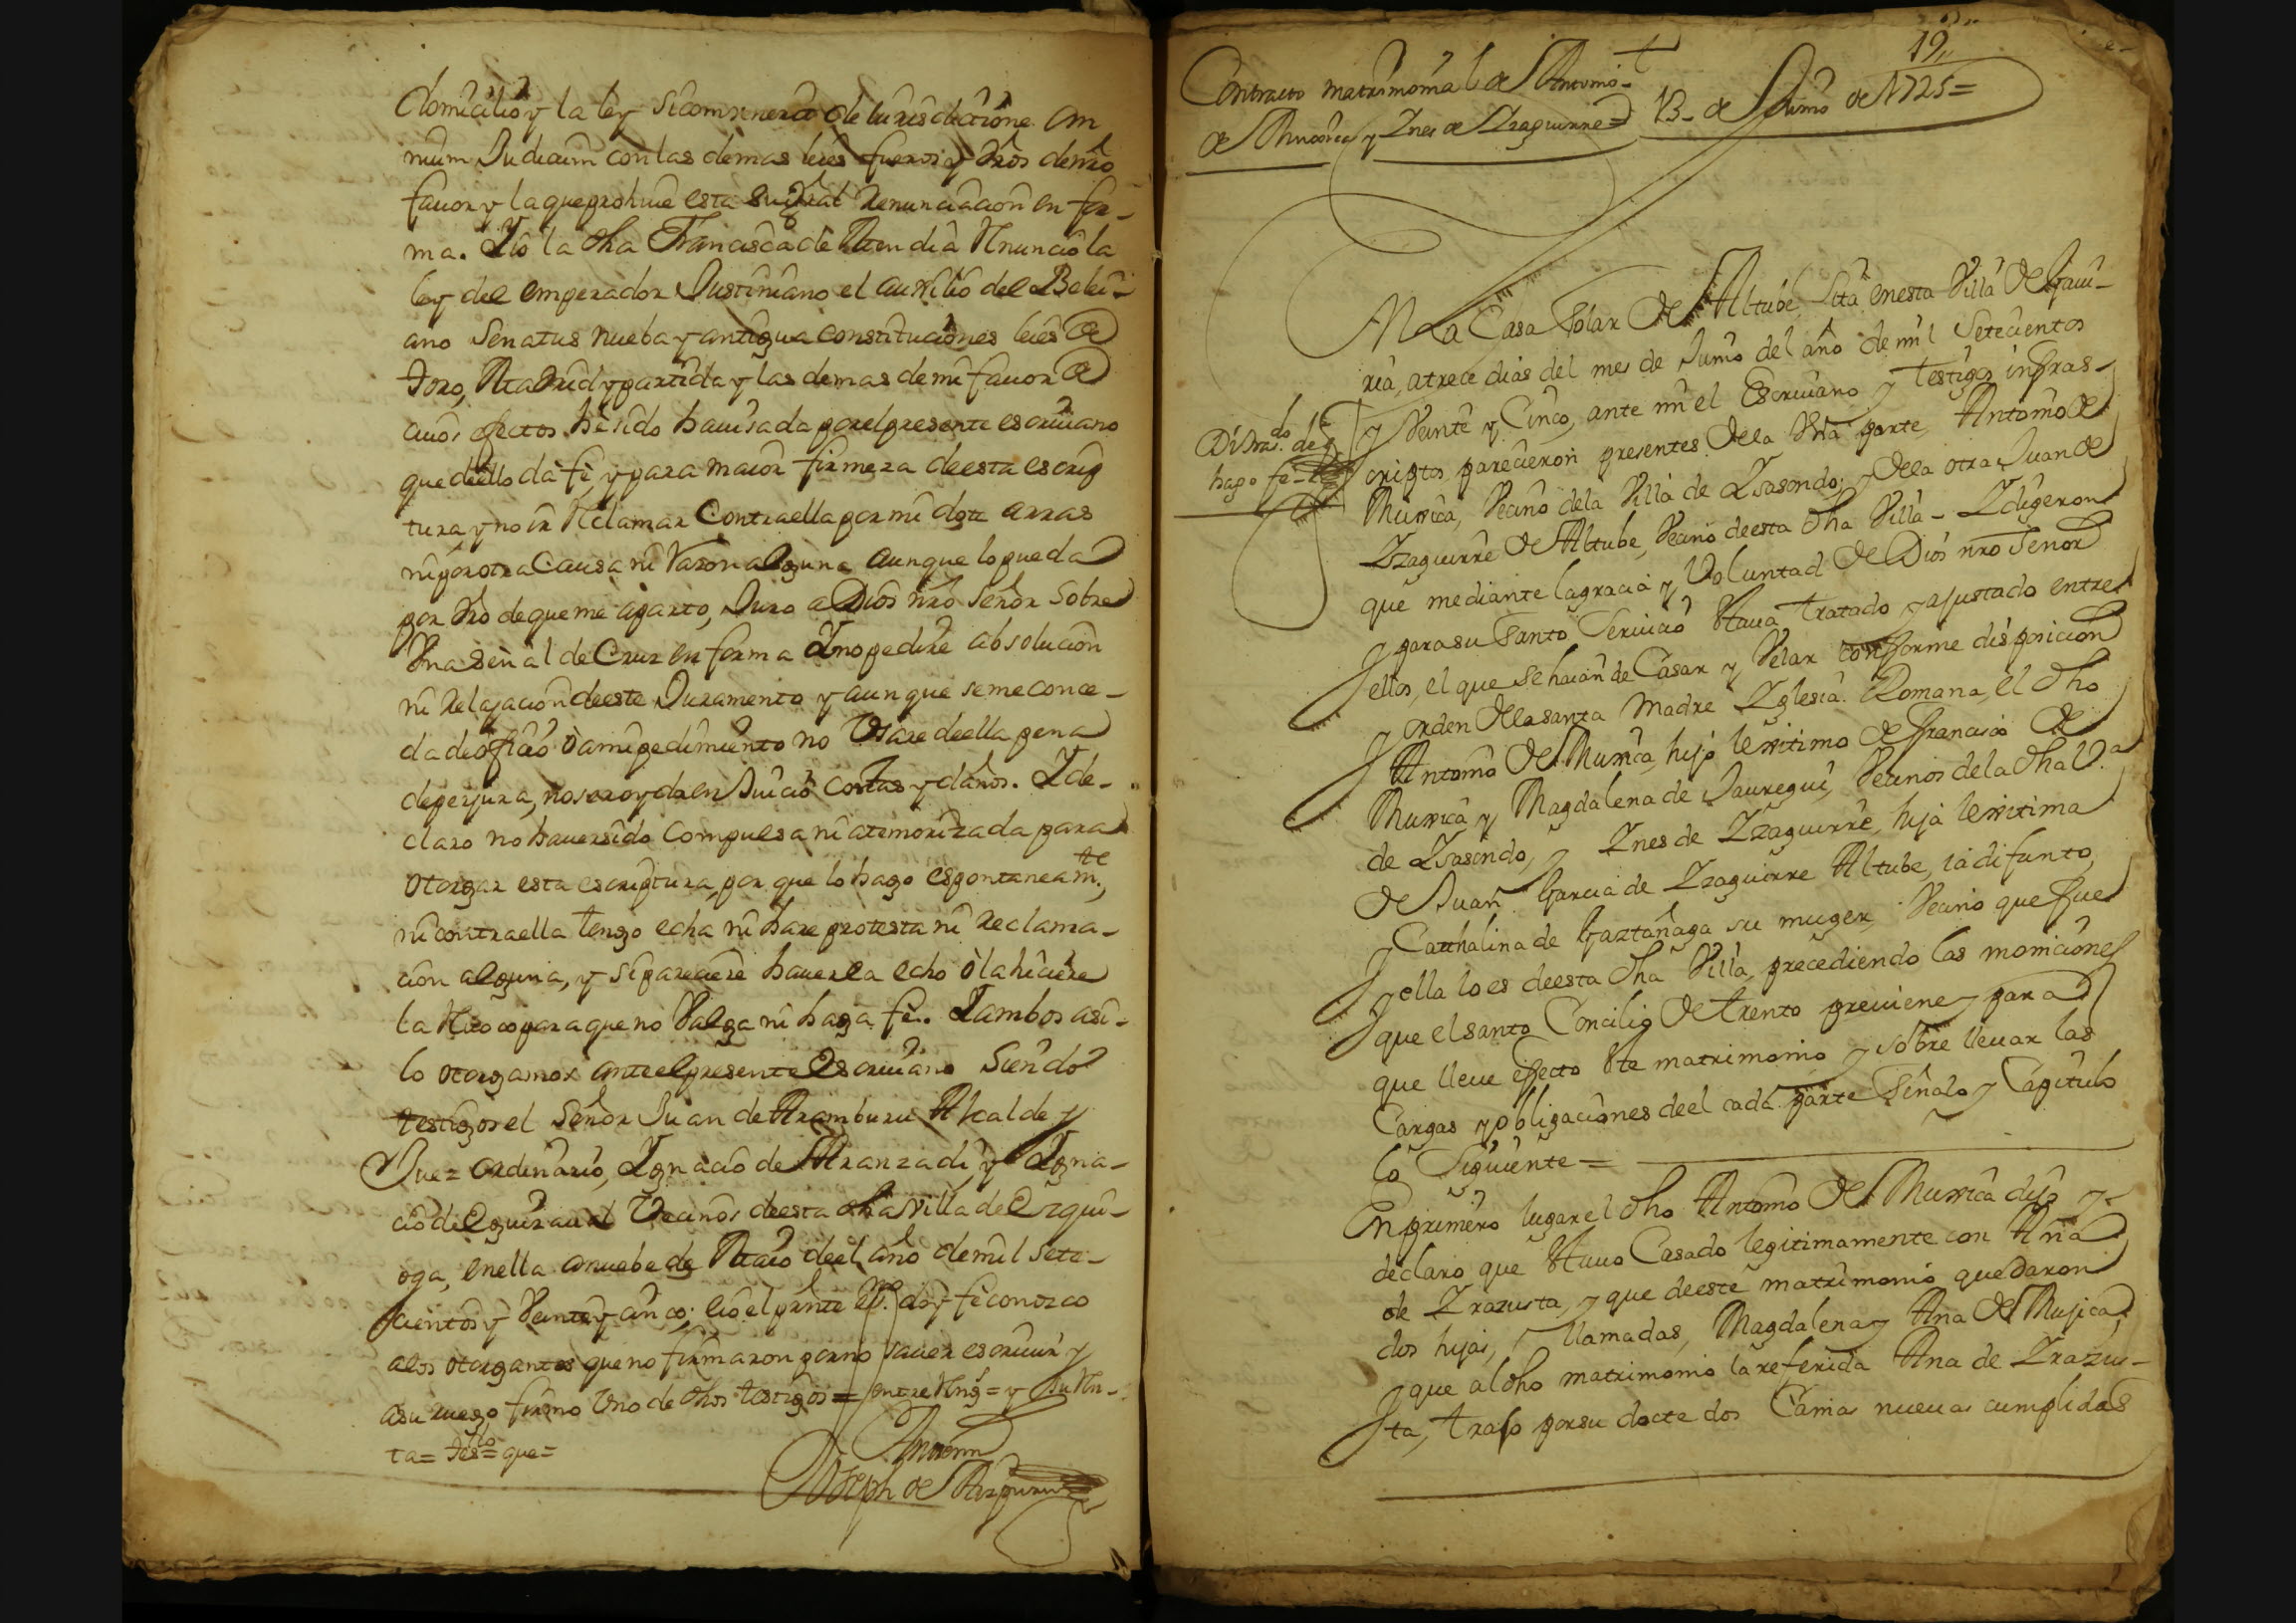 domicilio y la ley sicombenerit de iurisdictione om
nium Judicum con las demas leies fueros y dros de mio
fauor y la que prohiue esta su gral Renunciacion en for-
ma. Y io la dha Francisca de Mendia Renuncio la
ley del emperador Justiniano el auxilio del Belei-
ano Senatus nueba y antigua constituciones leies de
Toro, Madrid y partida y las demas de mi fauor de
cuios efectos he sido hauisada por el presente escriuano
que de ello da fe, y para maior firmeza de esta escrip
tura y no ir Reclamar Contra ella por mi dote arras
ni por otra Causa ni Razon alguna aunque lo pueda
por dro de que me aparto, Juro a Dios nro Señor Sobre
Vna Señal de Cruz en forma Y no pedire absolucion
ni Relajacion de este Juramento y aunque se me conce-
da de oficio ò a mi pedimiento no Vsare de ella pena
de perjura, no ser oyda en Juicio costas y daños. Y de-
claro no hauer sido Compulsa ni atemorizada para
otorgar esta escriptura, por que lo hago espontaneam.te,
ni contra ella tengo echa ni hare protesta ni Reclama-
cion alguna, y si pareciere hauerla echo ò la hiciere
la Reuoco para que no Valga ni haga fe. Y ambos asi-
lo otorgamos ante el presente Escriuano Siendo
testigos el Señor Juan de Aramburu Alcalde y
Juez ordinario, Ygnacio de Aranzadi, y Ygna-
cio de Eguzraual Vecinos de esta dha Villa de Ezqui-
oga, en ella a nuebe de Maio de el año de mil sete-
cientos y Veinte y cinco; e io el prnte Ess.no doy fe conozco
a los otorgantes que no firmaron por no sauer escriuir y
a su ruego firmo Vno de dhos testigos = entre Rengs = y su Ren-
ta = tes.do = que =
Ante mi
Joseph de Aizpuru
19,,
Contracto matrimonial de Antonio
de Muxica y Ynes de Yzaguirre = 13 - de Junio de 1725 =
En La Casa Solar de Altube, Sita en esta Villa de Gaui-
ria, a trece dias del mes de Junio del año de mil Setecientos
y Veinte y Cinco, ante mi el Escriuano y testigos infras-
criptos parecieron presentes de la Vna parte Antonio de
Muxica, Vecino de la Villa de Ysasondo; y de la otra Juan de
Yzaguirre de Altube, Vecino de esta dha Villa - Y digeron
que mediante la gracia y Voluntad de Dios nro Señor
y para su Santo Seruicio Hauia tratado y ajustado entre
ellos, el que se haian de Casar y Velar conforme disposicion
y orden de la santa Madre Yglesia Romana, el dho
Antonio de Muxica, hijo lexitimo de Francisco de
Muxica y Magdalena de Jauregui, Vecinos de la dha V.a
de Ysasondo, y Ynes de Yzaguirre, hija lexitima
de Juan Garcia de Yzaguirre Altube, ia difunto,
y Catthalina de Gaztañaga su muger, Vecino que fue
y ella lo es de esta dha Villa, precediendo las moniciones
que el santo Concilio de trento preuiene y para
que lleue effecto Ste matrimonio, y sobre lleuar las
Cargas y obligaciones de el cada parte Señalo y Capitulo
lo Siguiente =
En primero lugar el dho Antonio de Muxica dijo y
declaro, que Huuo Casado legitimamente con Ana
de Yrazusta, y que de este matrimonio quedaron
dos hijas, llamadas, Magdalena y Ana de Mujica,
y que al dho matrimonio la referida Ana de Yrazus-
ta, trajo por su docte dos Camas nueuas cumplidas
Di tras.do de
hago fe -